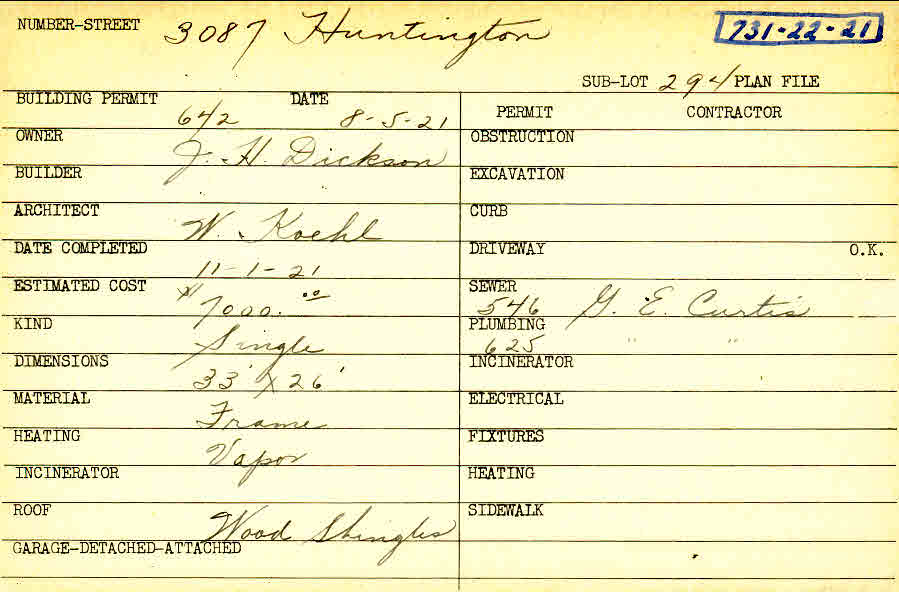 NUMBER-STREET 3087 Huntington 731-22-21
SUB-LOT 294 PLAN FILE
BUILDING PERMIT 642 DATE 8-5-21
PERMIT CONTRACTOR
OWNER J. H. Dickson
OBSTRUCTION
BUILDER
EXCAVATION
ARCHITECT W. Koehl
CURB
DATE COMPLETED 11-1-21
DRIVEWAY O.K.
ESTIMATED COST $7000.00
SEWER 546 G. E. Curtis
KIND Single
PLUMBING 625 " "
DIMENSIONS 33' X 26'
INCINERATOR
MATERIAL Frame
ELECTRICAL
HEATING Vapor
FIXTURES
INCINERATOR
HEATING
ROOF Wood Shingles
SIDEWALK
GARAGE-DETACHED-ATTACHED